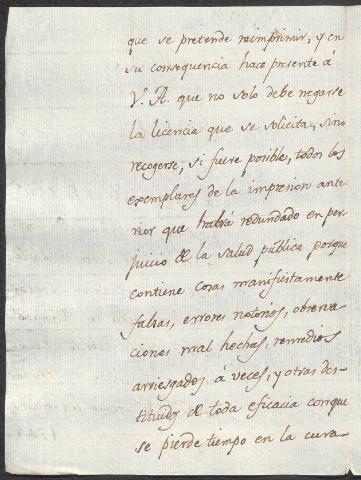 que se pretende reimprimir, y en
su consequencia hace presente á
V. A. que no solo debe negarse
la licencia que se solicita, sino
recogerse, si fuere posible, todos los
exemplares de la impresion ante-
rior que habrá redundado en per-
juicio de la salud pública porque
contiene cosas manifiestamente
falsas, errores notorios, observa-
ciones mal hechas, remedios
arriesgados á veces, y otras des-
tituidos de toda eficacia conque
se pierde tiempo en la cura-